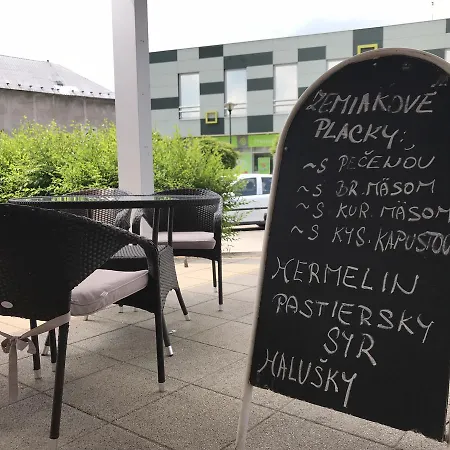 ZEMIAKOVÉ
PLACKY:
~S PEČENOU
~S BR.MÄSOM
~S KUR.MÄSOM
~S KYS.KAPUSTOU
HERMELIN
PASTIERSKY
SYR
HALUŠKY